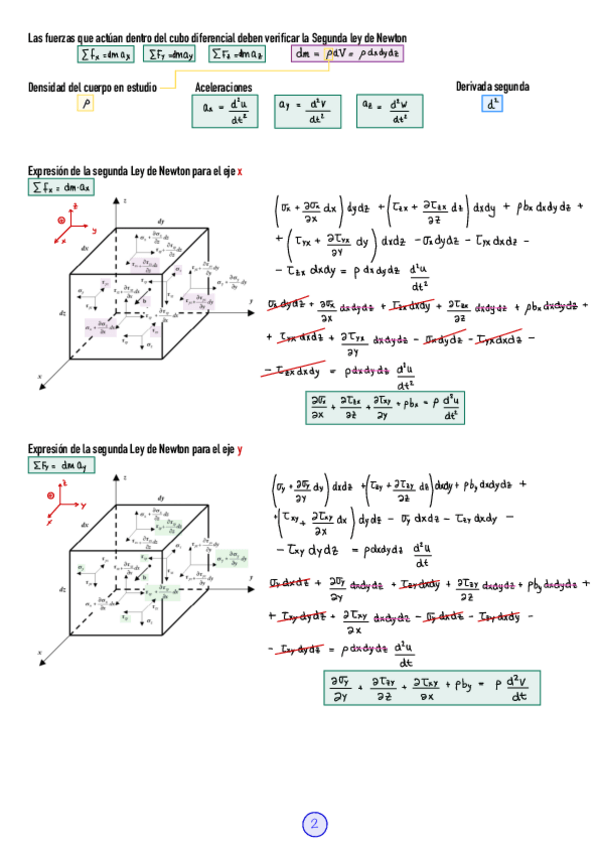 Las fuerzas que actúan dentro del cubo diferencial deben verificar la Segunda ley de Newton
∑fx = dm ax   ∑Fy = dm ay   ∑Fz = dm az   dm = ρ dV = ρ dxdydz
Densidad del cuerpo en estudio   Aceleraciones   Derivada segunda
ρ   ax = d²u/dt²   ay = d²v/dt²   az = d²w/dt²   d²
Expresión de la segunda Ley de Newton para el eje x
∑fx = dm·ax
(σx + ∂σx/∂x dx) dydz + (τzx + ∂τzx/∂z dz) dxdy + ρbx dxdydz +
+ (τyx + ∂τyx/∂y dy) dxdz - σxdydz - τyx dxdz -
- τzx dxdy = ρ dxdydz d²u/dt²
σx dydz + ∂σx/∂x dxdydz + τzx dxdy + ∂τzx/∂z dxdydz + ρbx dxdydz +
+ τyx dxdz + ∂τyx/∂y dxdydz - σxdydz - τyx dxdz -
- τzx dxdy = ρdxdydz d²u/dt²
∂σx/∂x + ∂τzx/∂z + ∂τxy/∂y + ρbx = ρ d²u/dt²
z
y
x
dy
dx
dz
Expresión de la segunda Ley de Newton para el eje y
∑Fy = dm ay
(σy + ∂σy/∂y dy) dxdz + (τzy + ∂τzy/∂z dz) dxdy + ρby dxdydz +
+ (τxy + ∂τxy/∂x dx) dydz - σy dxdz - τzy dxdy -
- τxy dydz = ρdxdydz d²u/dt
σy dxdz + ∂σy/∂y dxdydz + τzy dxdy + ∂τzy/∂z dxdydz + ρby dxdydz +
+ τxy dydz + ∂τxy/∂x dxdydz - σy dxdz - τzy dxdy -
- τxy dydz = ρ dxdydz d²u/dt
∂σy/∂y + ∂τzy/∂z + ∂τxy/∂x + ρby = ρ d²v/dt
z
y
x
dy
dx
dz
2